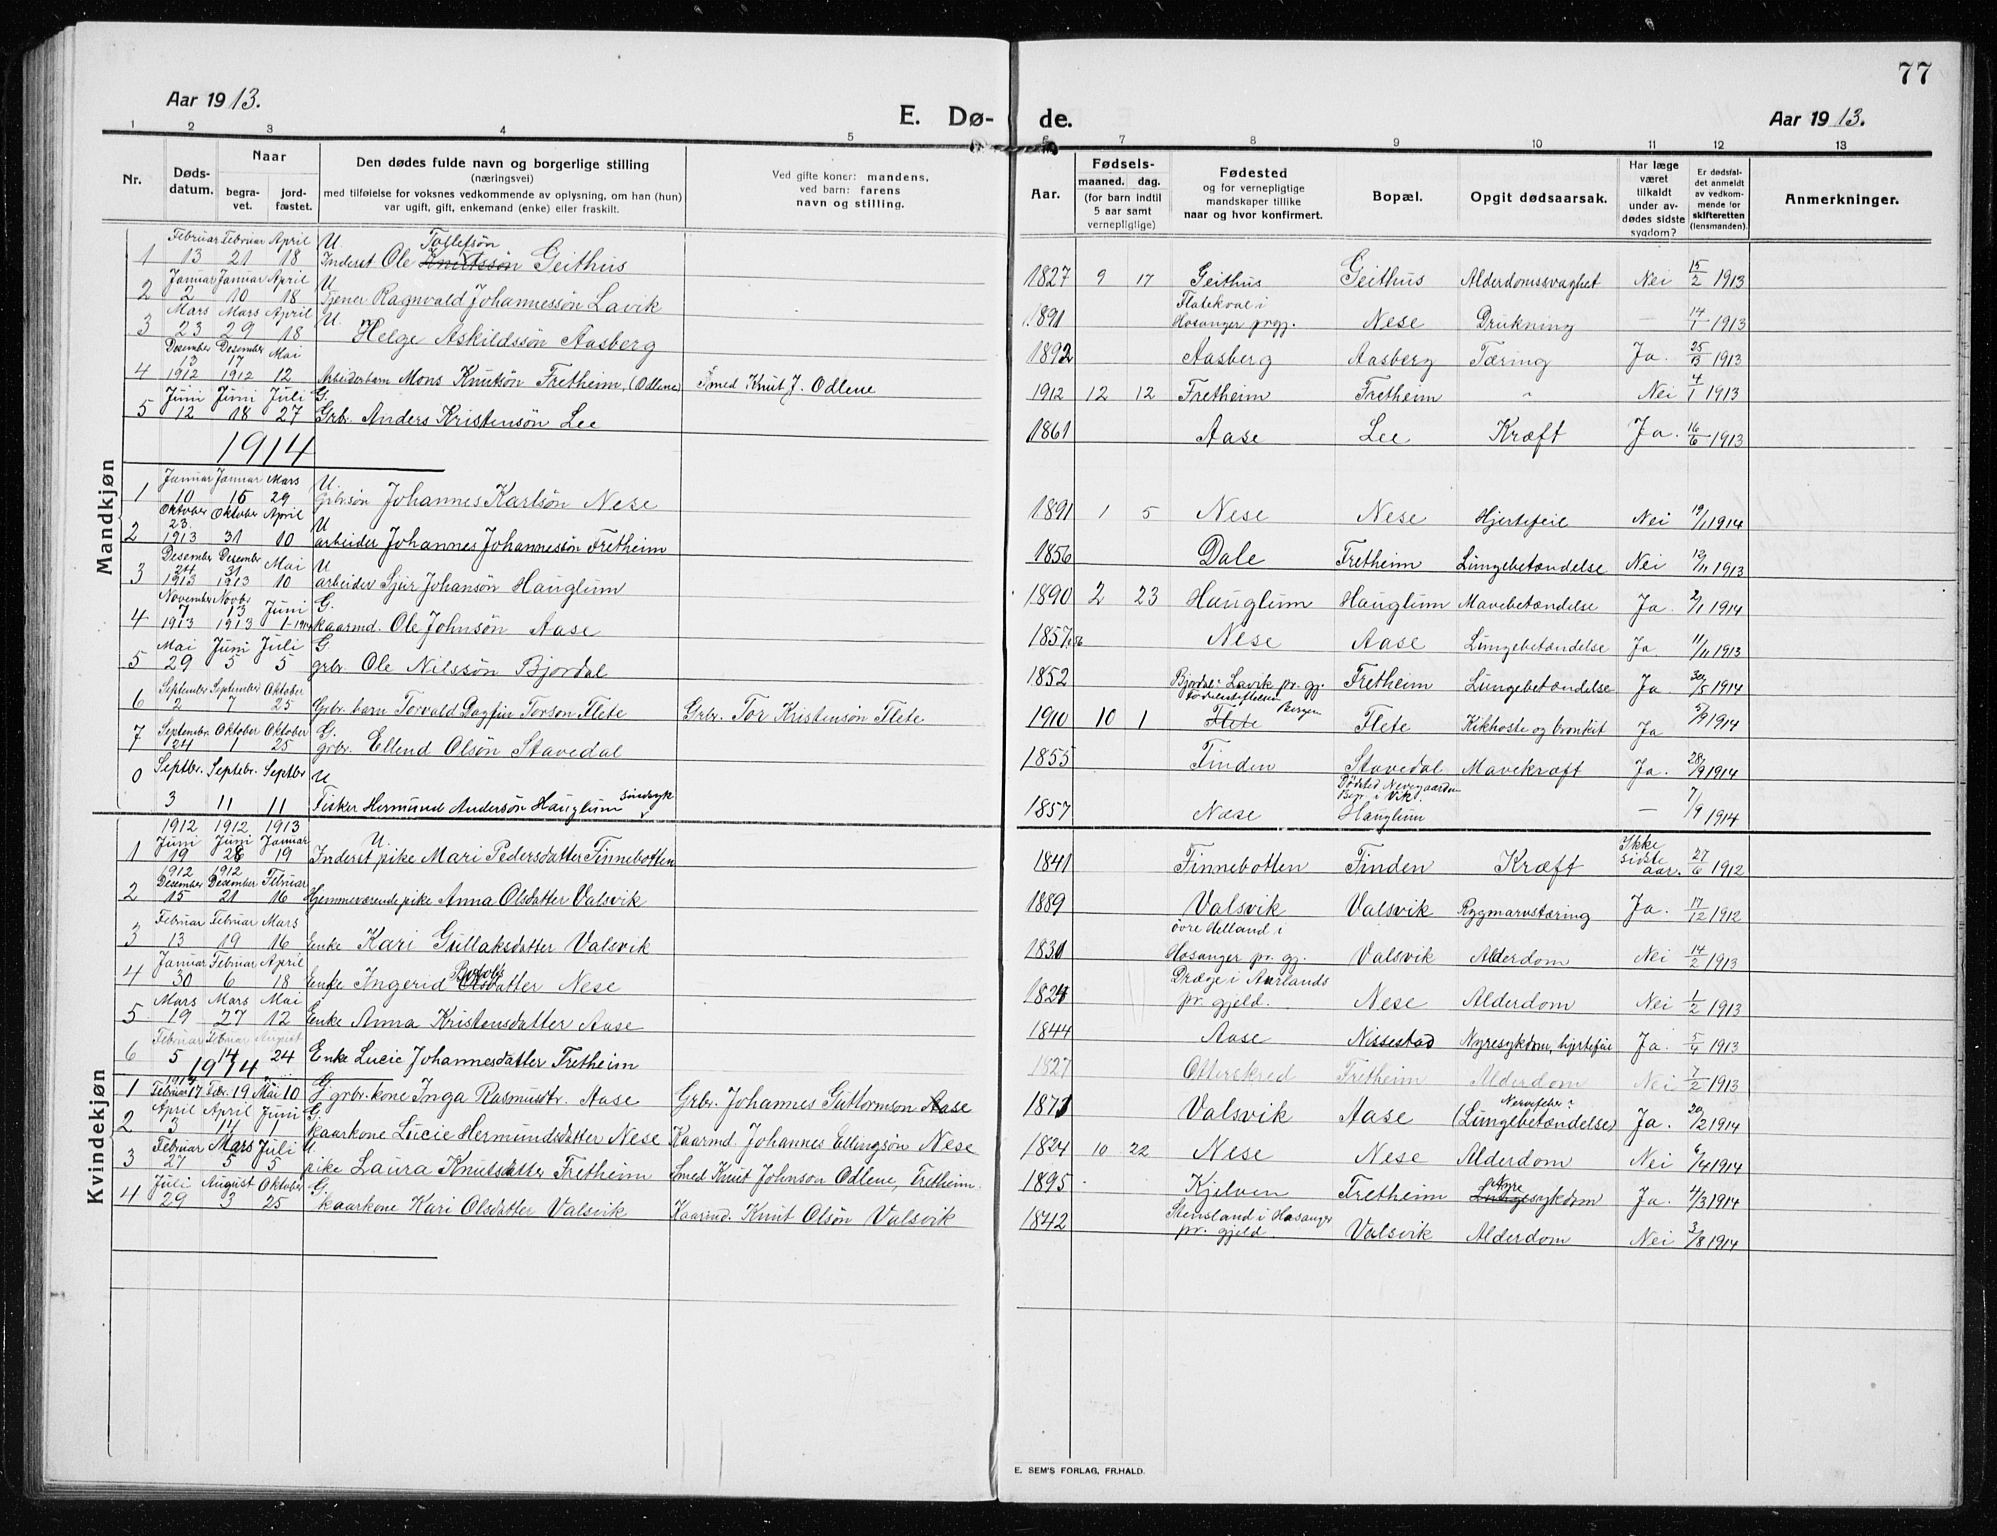 77
Aar 1913.
E. Dø- de.
Aar 1913.
1 2 3 4 5 6 7 8 9 10 11 12 13
Nr.
Døds-
datum.
Naar
begra-
vet.
jord-
fæstet.
Den dødes fulde navn og borgerlige stilling
(næringsvei)
med tilføielse for voksnes vedkommende av oplysning, om han (hun)
var ugift, gift, enkemand (enke) eller fraskilt.
Ved gifte koner: mandens,
ved barn: farens
navn og stilling.
Aar.
Fødsels-
maaned. dag.
(for barn indtil
5 aar samt
vernepligtige)
Fødested
og for vernepligtige
mandskaper tillike
naar og hvor konfirmert.
Bopæl.
Opgit dødsaarsak.
Har læge
været
tilkaldt
under av-
dødes sidste
sygdom?
Er dødsfal-
det anmeldt
av vedkom-
mende for
skifteretten
(lensmanden).
Anmerkninger.
Mandkjøn
Februar Februar April U. Tollefsøn
1 13 21 18 Inderst Ole Knutssøn Geithus 1827 9 17 Geithus Geithus Alderdomssvaghet Nei 15/2 1913
Januar Januar April U Flatekval i
2 2 10 18 Tjener Ragnvald Johannessøn Lavik 1891 Hosanger prgj. Nese Drukning — 14/1 1913
Mars Mars April U.
3 23 29 18 Helge Askildssøn Aasberg 1892 Aasberg Aasberg Tæring Ja. 25/3 1913
Desember Desember Mai
13 17
4 1912 1912 12 Arbeiderbarn Mons Knutsøn Fretheim, (Odlene) Smed Knut J. Odlene 1912 12 12 Fretheim Fretheim " Nei 4/1 1913
Juni Juni Juli G.
5 12 18 27 Grb. Anders Kristensøn Lee 1861 Aase Lee Kræft Ja. 16/6 1913
1914
Januar Januar Mars U.
1 10 15 29 Grbrsøn Johannes Karlsøn Nese 1891 1 5 Nese Nese Hjertefeil Nei 19/1 1914
Oktober Oktober April U
23
2 1913 31 10 arbeider Johannes Johannessøn Fretheim 1856 Dale Fretheim Lungebetændelse Nei 12/11 1913
Desember Desember Mai U
24 31
3 1913 1913 10 arbeider Sjur Johansøn Hauglum 1890 2 23 Hauglum Hauglum Mavebetændelse Ja. 2/1 1914
November Novbr Juni G.
7 13
4 1913 1913 1-1914 kaarmd. Ole Johnsøn Aase 1857 56 Nese Aase Lungebetændelse Ja. 11/11 1913
Mai Juni Juli G
5 29 5 5 grbr. Ole Nilssøn Bjordal 1852 Bjordal i Lavik pr. gj. Fretheim Lungebetændelse Ja 30/5 1914
September September Oktober Fødselsstiftelsen Bergen
6 2 7 25 Grbr. barn Torvald Dagfin Torson Flete Grbr. Tor Kristensøn Flete 1910 10 1 Flete Flete Kikhoste og bronkit Ja 5/9 1914
Septembr. Oktober Oktober G.
7 24 1 25 grbr. Ellend Olsøn Stavedal 1855 Finden Stavedal Mavekræft Ja. 28/9 1914
Septbr. Septebr. Septbr U Dødsted Nevegaarden
Ber. i Vik.
0 3 11 11 Fisker Hermund Andersøn Hauglum sindsyk 1857 Næse Hauglum — 7/9 1914
Kvindekjøn
1912 1912 1913
Juni Juni Januar U. Ikke
1 19 28 19 Inderst pike Mari Pedersdatter Finnebotten 1841 Finnebotten Finden Kræft sidste aar. 27/6 1912
1912 1912
Desember Desember Februar
2 15 21 16 Hjemmeværende pike Anna Olsdatter Valsvik 1889 Valsvik Valsvik Rygmarvstæring Ja. 17/12 1912
Februar Februar Mars øvre Helland i
3 13 19 16 Enke Kari Gullaksdatter Valsvik 1831 Hosanger pr. gj. Valsvik Alderdom Nei 14/2 1913
Januar Februar April Drægje i Aurlands
4 30 6 18 Enke Ingerid Botolfs Olsdatter Nese 1824 pr. gjeld. Nese Alderdom Nei 1/2 1913
Mars Mars Mai
5 19 27 12 Enke Anna Kristensdatter Aase 1844 Aase Nissestad Nyresykdom, hjertefeil Ja. 5/4 1913
Februar Februar August
6 5 14 24 Enke Lucie Johannesdatter Fretheim 1827 Otterskred Fretheim Alderdom Nei 7/2 1913
1914
1 Februar 17 Febr. 19 Mai 10 G grbr. kone Inga Rasmusdtr. Aase Grbr. Johannes Guttormson Aase 1871 Valsvik Aase Nervefeber ? (Lungebetændelse) Ja. 20/2 1914
April April Juni G.
2 3 14 1 kaarkone Lucie Hermundsdatter Nese Kaarmd. Johannes Ellingsøn Nese 1824 10 22 Nese Nese Alderdom Nei 6/4 1914
Februar Mars Juli U.
3 27 5 5 pike Laura Knutsdatter Fretheim Smed Knut Johnson Odlene, Fretheim. 1895 Kjelven Fretheim Nyre Lungesykdom Ja. 4/3 1914
Juli August Oktober G. Stensland i Hosanger
4 29 3 25 kaarkone Kari Olsdatter Valsvik Kaarmd. Knut Olsøn Valsvik 1842 pr. gjeld. Valsvik Alderdom Nei 3/8 1914
E. SEM'S FORLAG, FR.HALD.